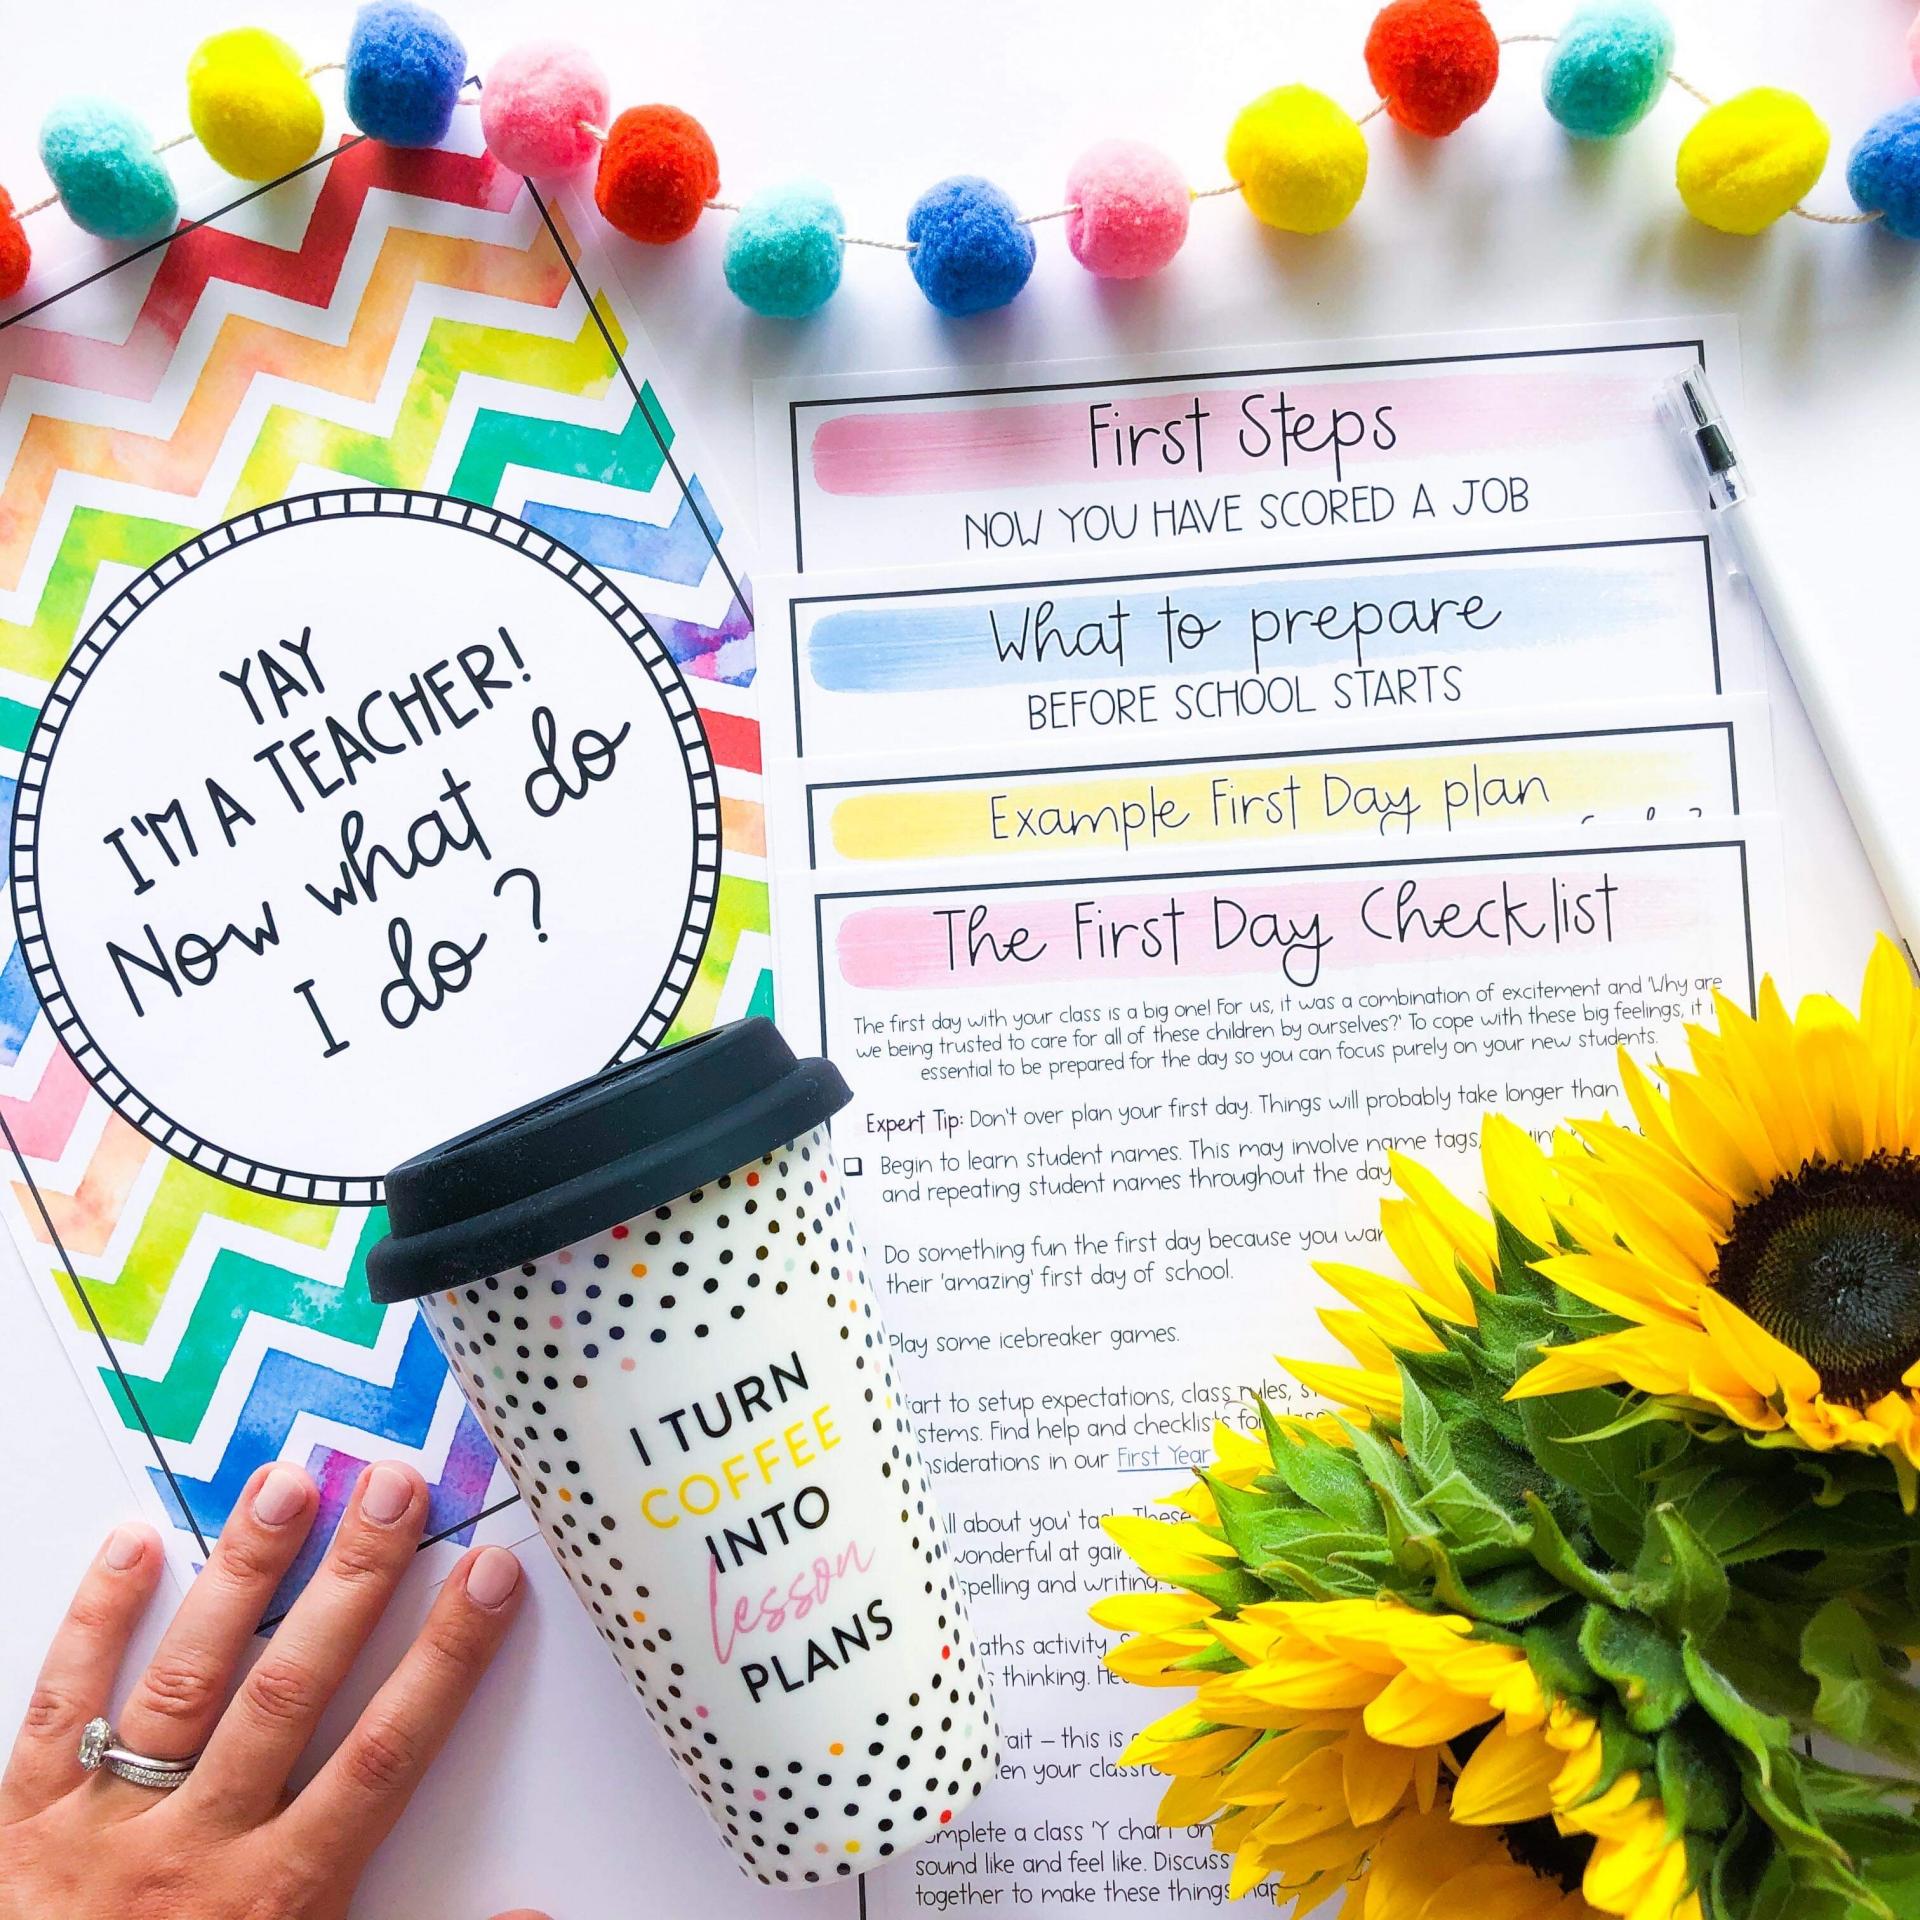 YAY
I'M A TEACHER!
Now what do
I do?
First Steps
NOW YOU HAVE SCORED A JOB
What to prepare
BEFORE SCHOOL STARTS
Example First Day plan
The First Day Checklist
The first day with your class is a big one! For us, it was a combination of excitement and 'Why are
we being trusted to care for all of these children by ourselves?' To cope with these big feelings, it
essential to be prepared for the day so you can focus purely on your new students.
Expert Tip: Don't over plan your first day. Things will probably take longer than
Begin to learn student names. This may involve name tags,
and repeating student names throughout the day
Do something fun the first day because you
their 'amazing' first day of school.
Play some icebreaker games.
to setup expectations, class rules,
Find help and checklists
in our First Year
about you' These
wonderful at
spelling and writing.
activity
thinking.
– this is
your
a class 'Y chart on
sound like and feel like. Discuss
together to make these things
I TURN
COFFEE
INTO
lesson
PLANS